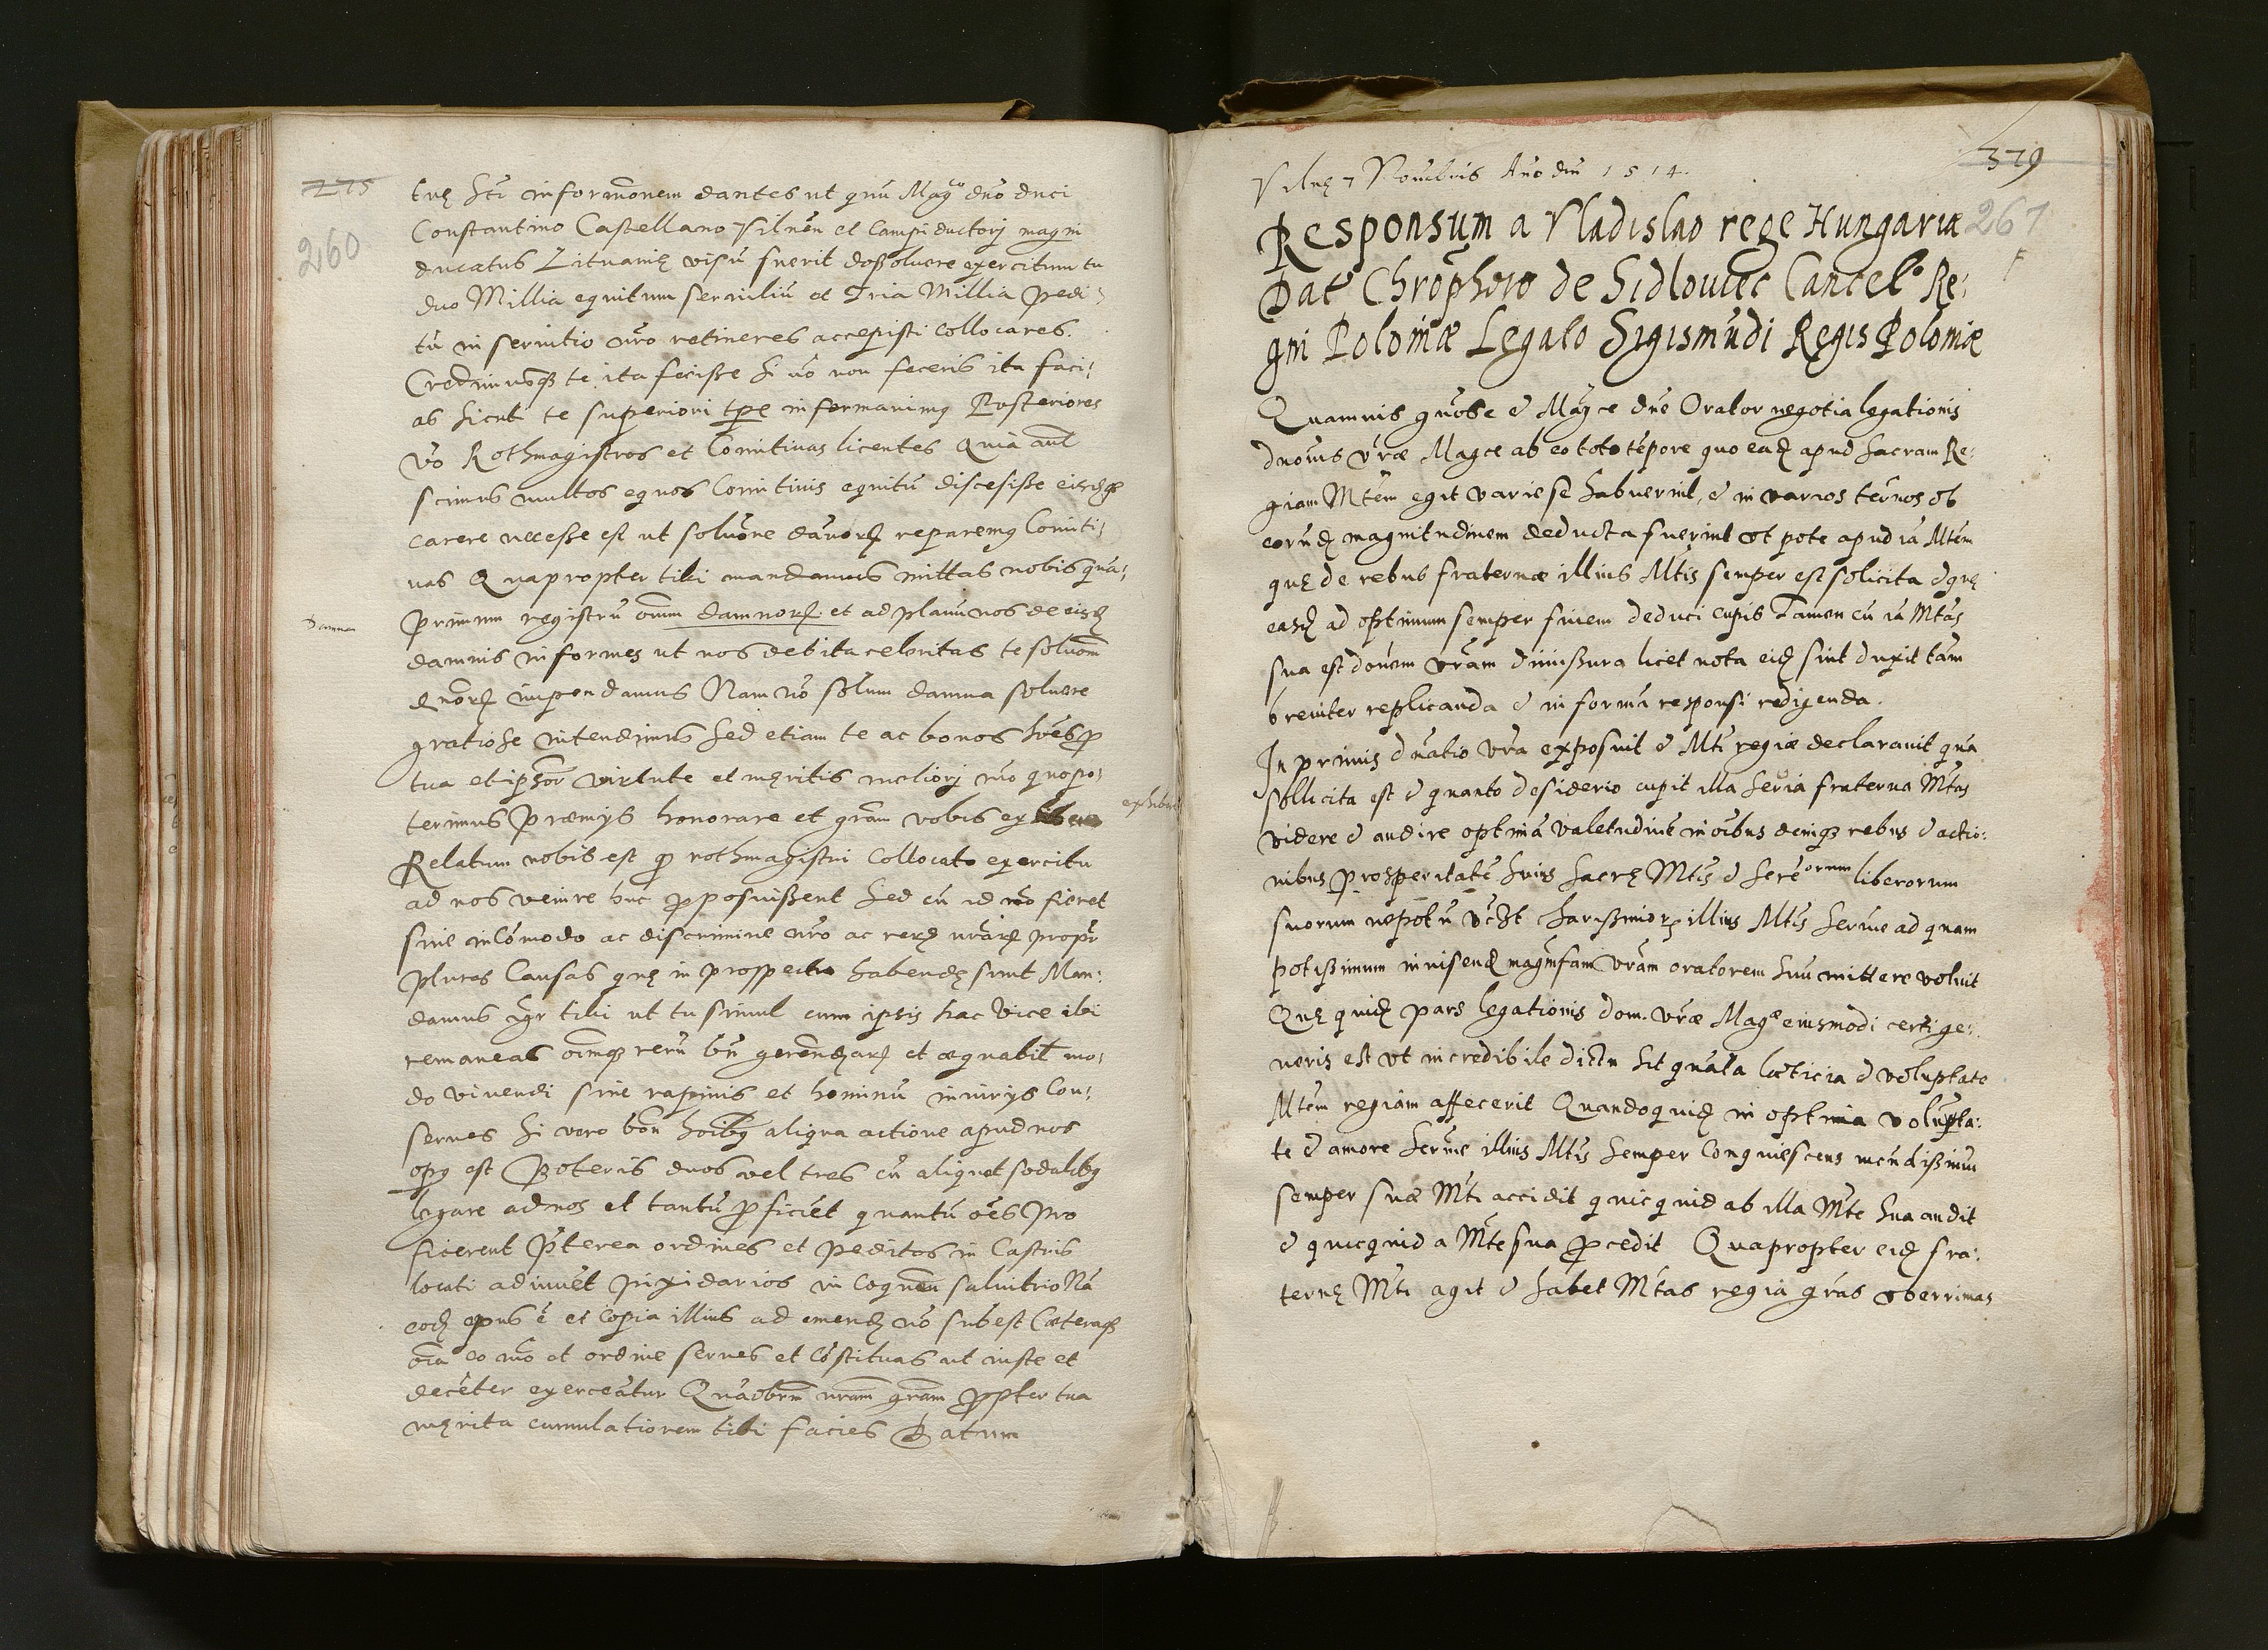 275
260
tuę Sti informãonem dantes ut quũ Mag.co dño duci
Constantino Castellano Vilnẽn et Campi ductorj magni
ducatus Lituanię visũ fuerit dossoluere exercitum tu
duo Millia equitum seruiliũ et Tria Millia pedi-
tũ in seruitio nr̃o retineres accepisti collocares.
Credimusq3 te ita fecisse si ũo non feceris ita faci-
as sicuti te superiori tp̃e informauimq Posteriores
vo Rothmagistros et Comitiuas licentes Quia aũt
scimus multos equos Comitiuis equitũ discesisse eisdsq3
carere necesse est ut soluõne damnorꝝ reparemq Comiti-
uas Quapropter tibi mandamus mittas nobis qua-
Damna
primum registrũ oĩum damnorꝝ et ad planũ nos de eisd
damnis informes ut nos debita celeritas te soluõm
damnis informes impendamus Nam nõ solum damna soluere
gratiose intendimus sed etiam te ac bonos hoẽs ꝓ
tua et ipsor̃ virtute et męritis meliorj mo quo po-
terimus Præmijs honorare et grãm vobis ex exhibere
Relatum nobis est ꝙ rothmagistri Collocato exercitu
ad nos venire huc ꝓposuissent sed cũ id nõ fieret
sine incõmodo ac discrimine nr̃o ac rerꝝ nr̃arꝝ propr̃
plures Causas quę in prospectu habendę sunt Man-
damus igr̃ tibi ut tu simul cum ipsis hac vice ibi
remaneas oĩmq3 rerũ bñ gerendarꝝ et æquabilĩ mo-
do viuendi sine rapinis et hominũ iniurijs Con-
serues Si vero bõn hoĩbq aliqua actione apud nos
opq est Poteris duos vel tres cũ aliquot sodalibq
legare ad nos et tantũ ꝓficiẽt quantũ oẽs pro
ficerent p̃terea ordines et peditos in Castris
locati adiuuẽt pixidarios in coquẽn salnitrio Nã
eod opus ẽ et Copia illius ad emend nõ subest Cæteraq3
oĩa eo mõ et ordine serues et cõstituas ut iuste et
decẽter exerceãtur Quãobrẽm nr̃am grãm ꝓpter tua
męrita cumulatiorem tibi facies Datum
379
Vilnę 7 Nouẽbris Año dni 1514.
Responsum a Vladislao rege Hungariæ
267
Dat Chrõphoro de Sidlouiec Cancel.o Re-
F
gni Poloniæ Legato Sigismũdi Regis Poloniæ
Quamuis gñose & Mag.ce dñe Orator negotia legationis
dnõuis vr̃æ Magce ab eo toto tẽpore quo ead apud sacram Re-
giam Mtẽm egit varie se habuerint, & in varios termos ob
eorũd magnitudinem deducta fuerint vt pote apud iã Mtẽm
quę de rebus fraternæ illius Mtis semper est solicita & quę
easd ad optimum semper finem deduci cupit Tamen cũ iã Mtas
sua est dõnem vr̃am dimissura licet nota eid sint duxit tãm
breuiter replicanda & in formã responsi redigenda.
In primis dnatio vr̃a exposuit & Mti regiæ declarauit quã
sollicita est & quanto desiderio cupit illa Seria fraterna Mtas
videre & audire optimã valetudinẽ in oĩbus deniq3 rebus & actio-
nibus prosperitatẽ huius sacrę Mtis & Sere orum liberorum
suorum nepotũ vc3t charissimiorꝝ illius Mtis Sermę ad quam
potissimum inuisend magnĩfam vr̃am oratorem suũ mittere voluit
Quę quid pars legationis dom. vr̃æ Magæ eiusmodi certi ge-
neris est vt incredibile dictu sit quãta lætitia & voluptate
Mtẽm regiam affecerit Quandoquid in optima volupta-
te & amore Sermę illius Mtis semper conquiescens iucũdissimũ
semper suæ Mti accidit quicquid ab illa Mte sua audit
& quicquid a Mte sua ꝓcedit Quapropter eid fra-
ternę Mti agit & habet Mtas regia grãs vberrimas